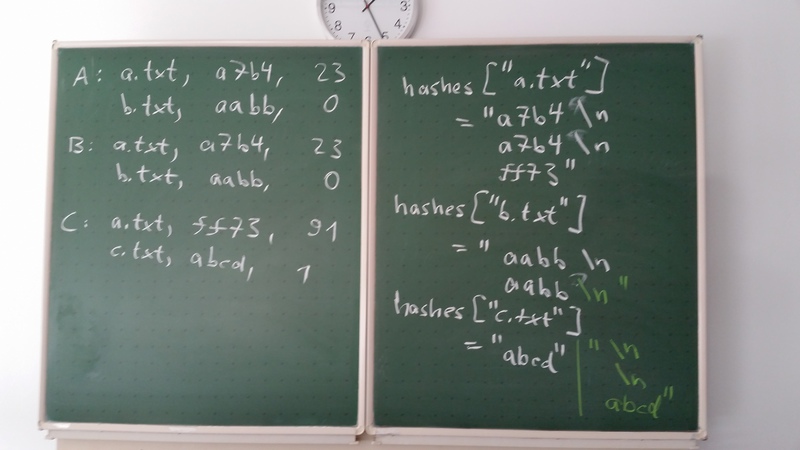 9 3
8 4
7 6 5
A: a.txt, a7b4, 23
b.txt, aabb, 0
B: a.txt, a7b4, 23
b.txt, aabb, 0
C: a.txt, ff73, 91
c.txt, abcd, 1
hashes ["a.txt"]
= "a7b4 \n
a7b4 \n
ff73"
hashes ["b.txt"]
= " aabb \n
aabb \n "
hashes ["c.txt"]
= "abcd" " \n
\n
abcd"